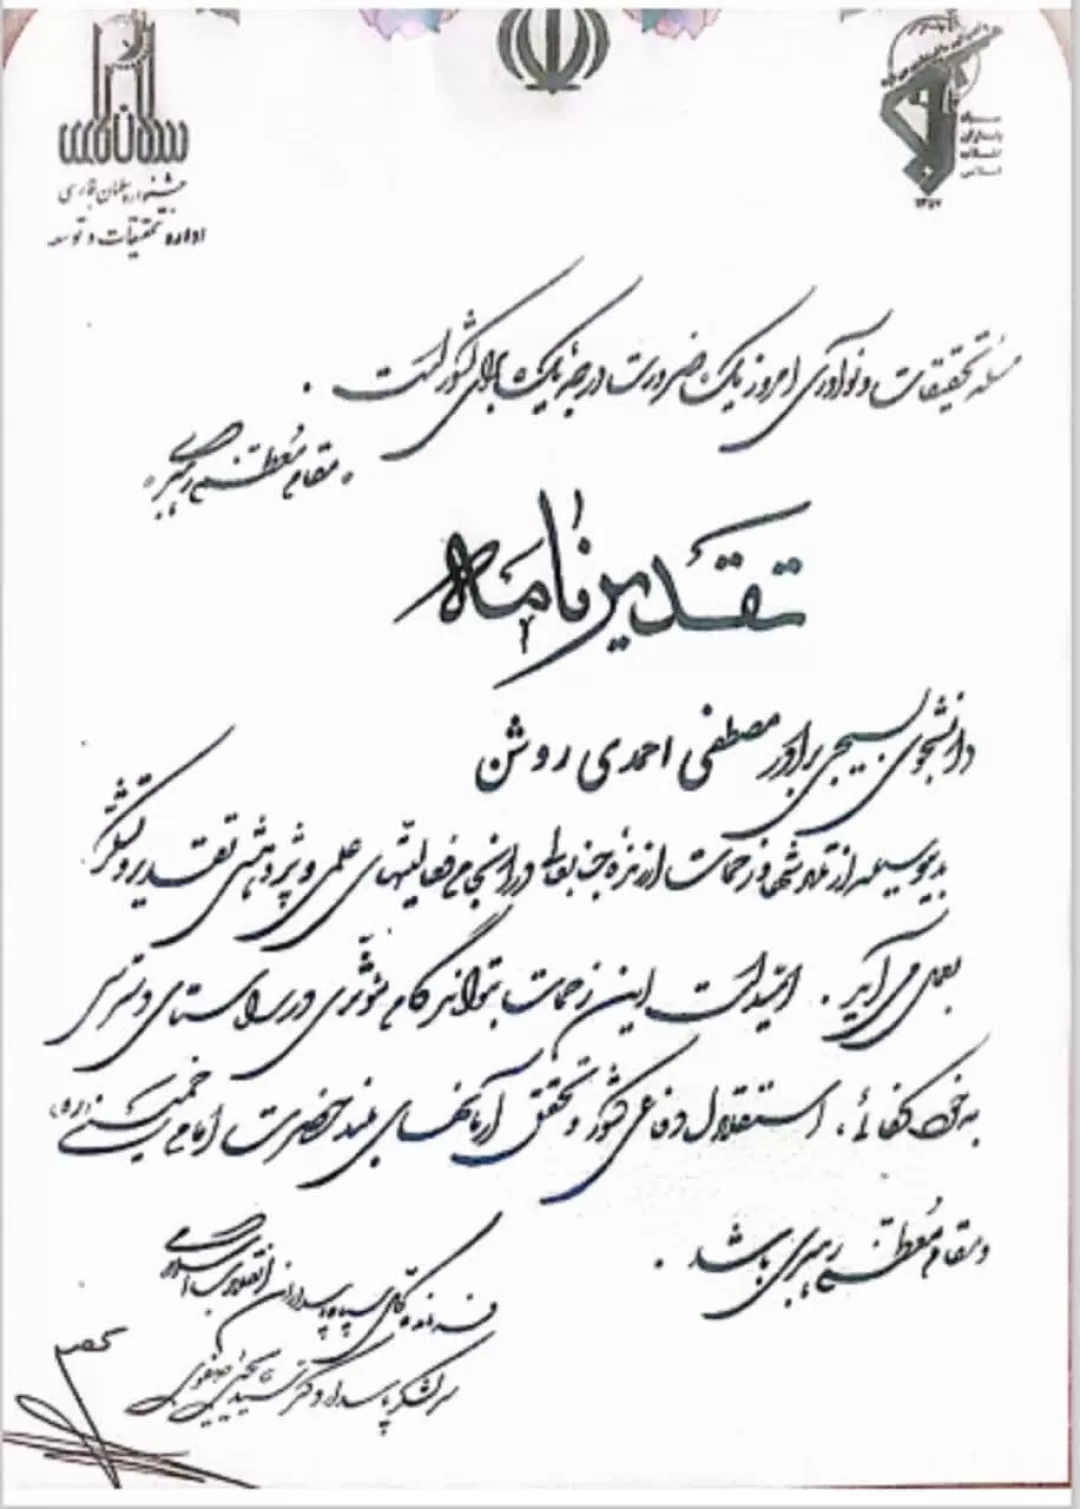 سلمان فارسی
جشنواره سلمان فارسی
اداره تحقیقات و توسعه
سپاه
پاسداران
انقلاب
اسلامی
مسئله تحقیقات و نوآوری امروز یک ضرورت درجه یک برای کشور است .
« مقام معظم رهبری »
تقدیرنامه
دانشجوی بسیجی برادر مصطفی احمدی روشن
بدینوسیله از تلاشها و زحمات ارزنده جنابعالی در انجام فعالیتهای علمی و پژوهشی تقدیر و تشکر
بعمل می آید . امید است این زحمات بتواند گام مؤثری در راستای دسترسی
به خودکفائی ، استقلال دفاعی کشور و تحقق آرمانهای بلند حضرت امام خمینی (ره)
و مقام معظم رهبری باشد .
فرمانده کل سپاه پاسداران انقلاب اسلامی
سرلشکر پاسدار دکتر سید یحیی صفوی